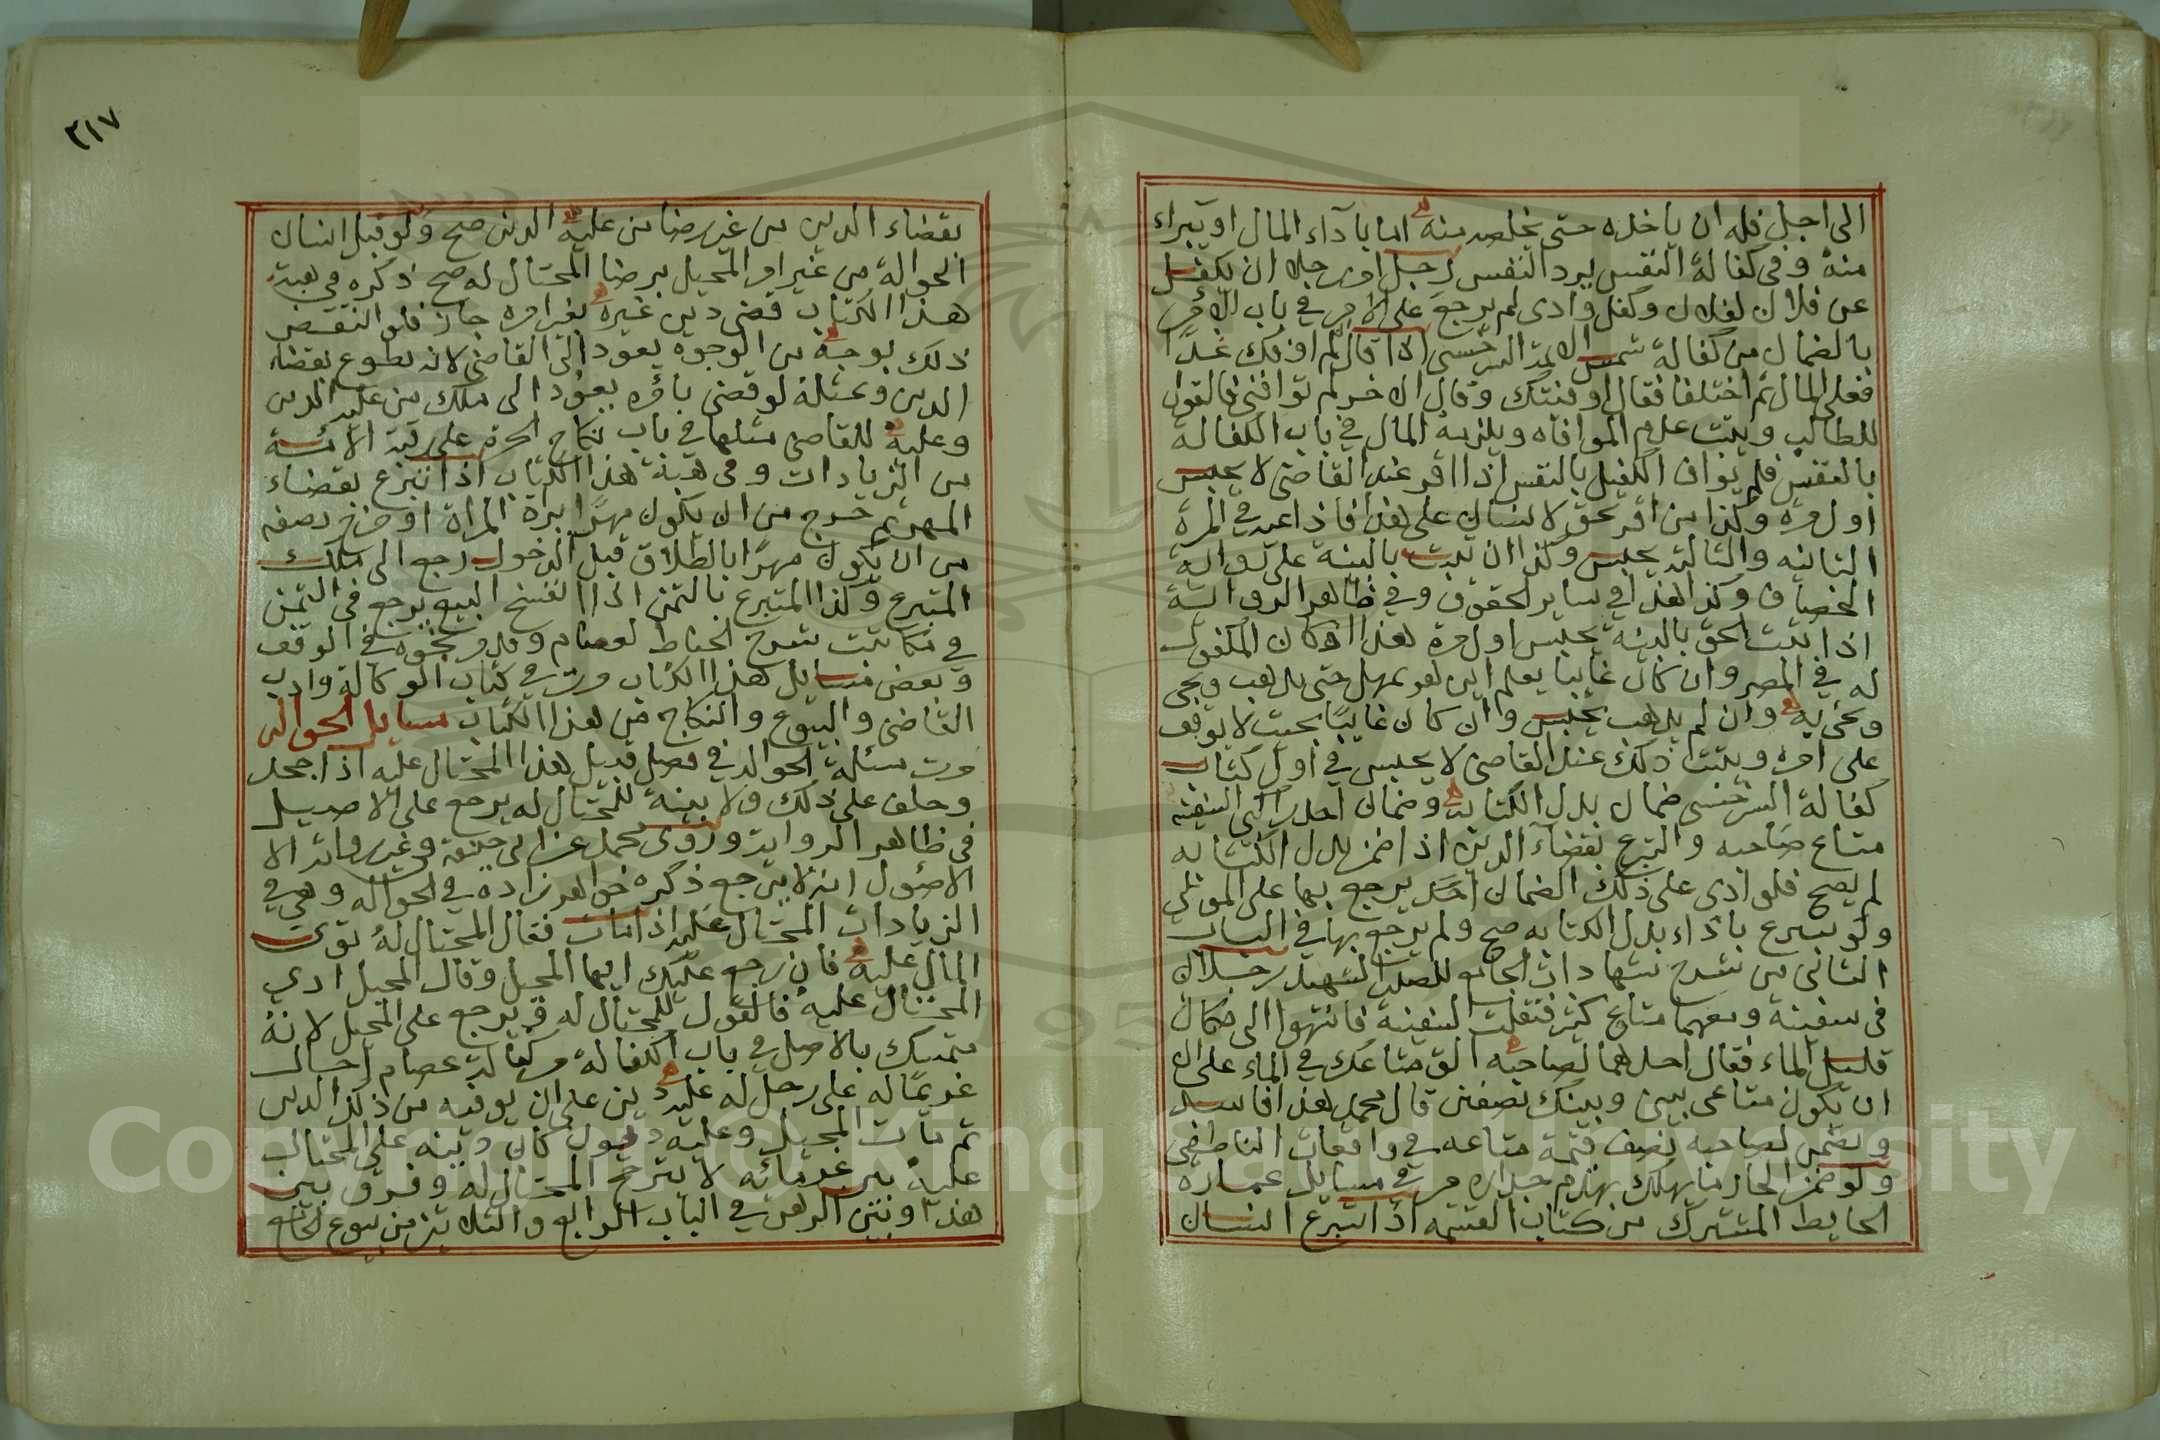 الى اجل فله ان ياخذه حتى يخلصه منه اما باداء المال او يبراء
منه وفي كفالة النفس يرد النفس رجل امر رجلا ان يكفل
عن فلان لفلان وكفل وادى لم يرجع على الامر في باب الامر
بالضمان من كفالة شمس الائمة السرخسي اذا قال لم اوفك غدا
فعلى المال ثم اختلفا فقال اوفيتك وقال الاخر لم توافني فالقول
للطالب ويثبت عدم الموافاه ويلزمه المال في باب الكفالة
بالنفس فلم يواف الكفيل بالنفس اذا اقر عند القاضى لا يحبس
اول مرة وكذا من اقر بحق لانسان على هذا فاذا اعيد في المرة
الثانيه والثالثه يحبس وكذا ان ثبت بالبينة على رواية
الخصاف وكذا هذا في ساير الحقوق وفي ظاهر الرواية
اذا ثبت الحق بالبينة يحبس اول مرة هذا اذا كان المكفول
له في المصر وان كان غايبا يعلم اين هو يمهل حتى يذهب ويجى
ويجئ به وان لم يذهب يحبس وان كان غايبا بحيث لا يوقف
على امره ويثبت ذلك عند القاضى لا يحبس في اول كتاب
كفالة السرخسى ضمان بدل الكتابة وضمان احد راكبي السفينه
متاع صاحبه والتبرع بقضاء الدين اذا ضمن بدل الكتابه
لم يصح فلو ادى على ذلك الضمان احد يرجع بها على المولى
ولو تبرع باداء بدل الكتابه صح ولم يرجع بها في الباب
الثانى من شرح شهادات الجامع للصدر الشهيد رجلان
في سفينة ومعهما متاع كثير فثقلت السفينة فانتهوا الى مكان
قليل الماء فقال احدهما لصاحبه الق متاعك في الماء على ان
ان يكون متاعى بينى وبينك نصفين قال محمد هذا فاسد
ويضمن لصاحبه نصف قيمة متاعه في واقعات الناطفى
ولو ضمن الجار ما يهلك بهدم جداره مر في مسايل عمارة
الحايط المشترك من كتاب القسمه اذا تبرع انسان
٣١٧
بقضاء الدين من غير رضا من عليه الدين صح ولو قبل انسان
الحوالة من غير امر المحيل برضا المحتال له صح ذكره في هبة
هذا الكتاب قضى دين غيره بغير امره جاز فلو انتقض
ذلك بوجه من الوجوه يعود الى القاضى لانه تطوع بقضاء
الدين وبمثله لو قضى بامره يعود الى ملك من عليه الدين
وعليه للقاضى مثلها في باب نكاح الحرة على رقبة الامة
من الزيادات وفي هبة هذا الكتاب اذا تبرع بقضاء
المهر ثم خرج من ان يكون مهرا بردة المراة او خرج نصفه
من ان يكون مهرا بالطلاق قبل الدخول رجع الى ملك
المتبرع وكذا المتبرع بالثمن اذا انفسخ البيع يرجع في الثمن
في مكاتبت شرح الحناط لعصام وقد مر نحوه في الوقف
وبعض مسايل هذا الكتاب مرت في كتاب الوكالة وادب
القاضى والبيوع والنكاح من هذا الكتاب مسايل الحواله
مرت مسئلة الحواله في فصل قبيل هذا المحتال عليه اذا جحد
وحلف على ذلك ولا بينة للمحتال له يرجع على الاصيل
في ظاهر الروايه وروى محمد عن ابي حنيفة وغير رواية الا
الاصول انه لا يرجع ذكره خواهر زاده في الحواله وهي في
الزيادات المحتال عليه اذا مات فقال المحتال له توى
المال عليه فان رجع عليك ايها المحيل وقال المحيل ادى
المحتال عليه فالقول للمحتال له ويرجع على المحيل لانه
يتمسك بالاصل في باب الكفالة من كفالة عصام احال
غريما له على رجل له عليه دين على ان يوفيه من ذلك الدين
ثم مات المحيل وعليه ديون كان دينه على المحتال
عليه بين غرمائه لا يترجح المحتال له وفرق بين
هذا وبين الرهن في الباب الرابع والثلاثين من بيوع الجامع